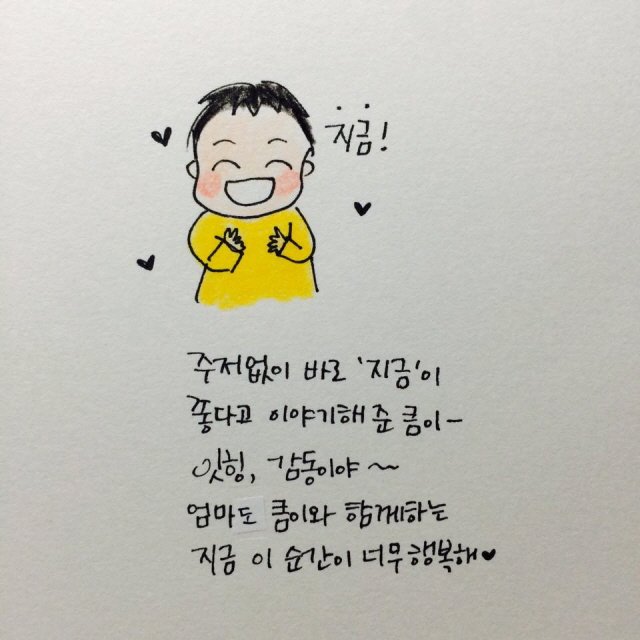 지금!
주저없이 바로 '지금'이
좋다고 이야기해 준 큼이-
잇힝, 감동이야~
엄마도 큼이와 함께하는
지금 이 순간이 너무 행복해♥